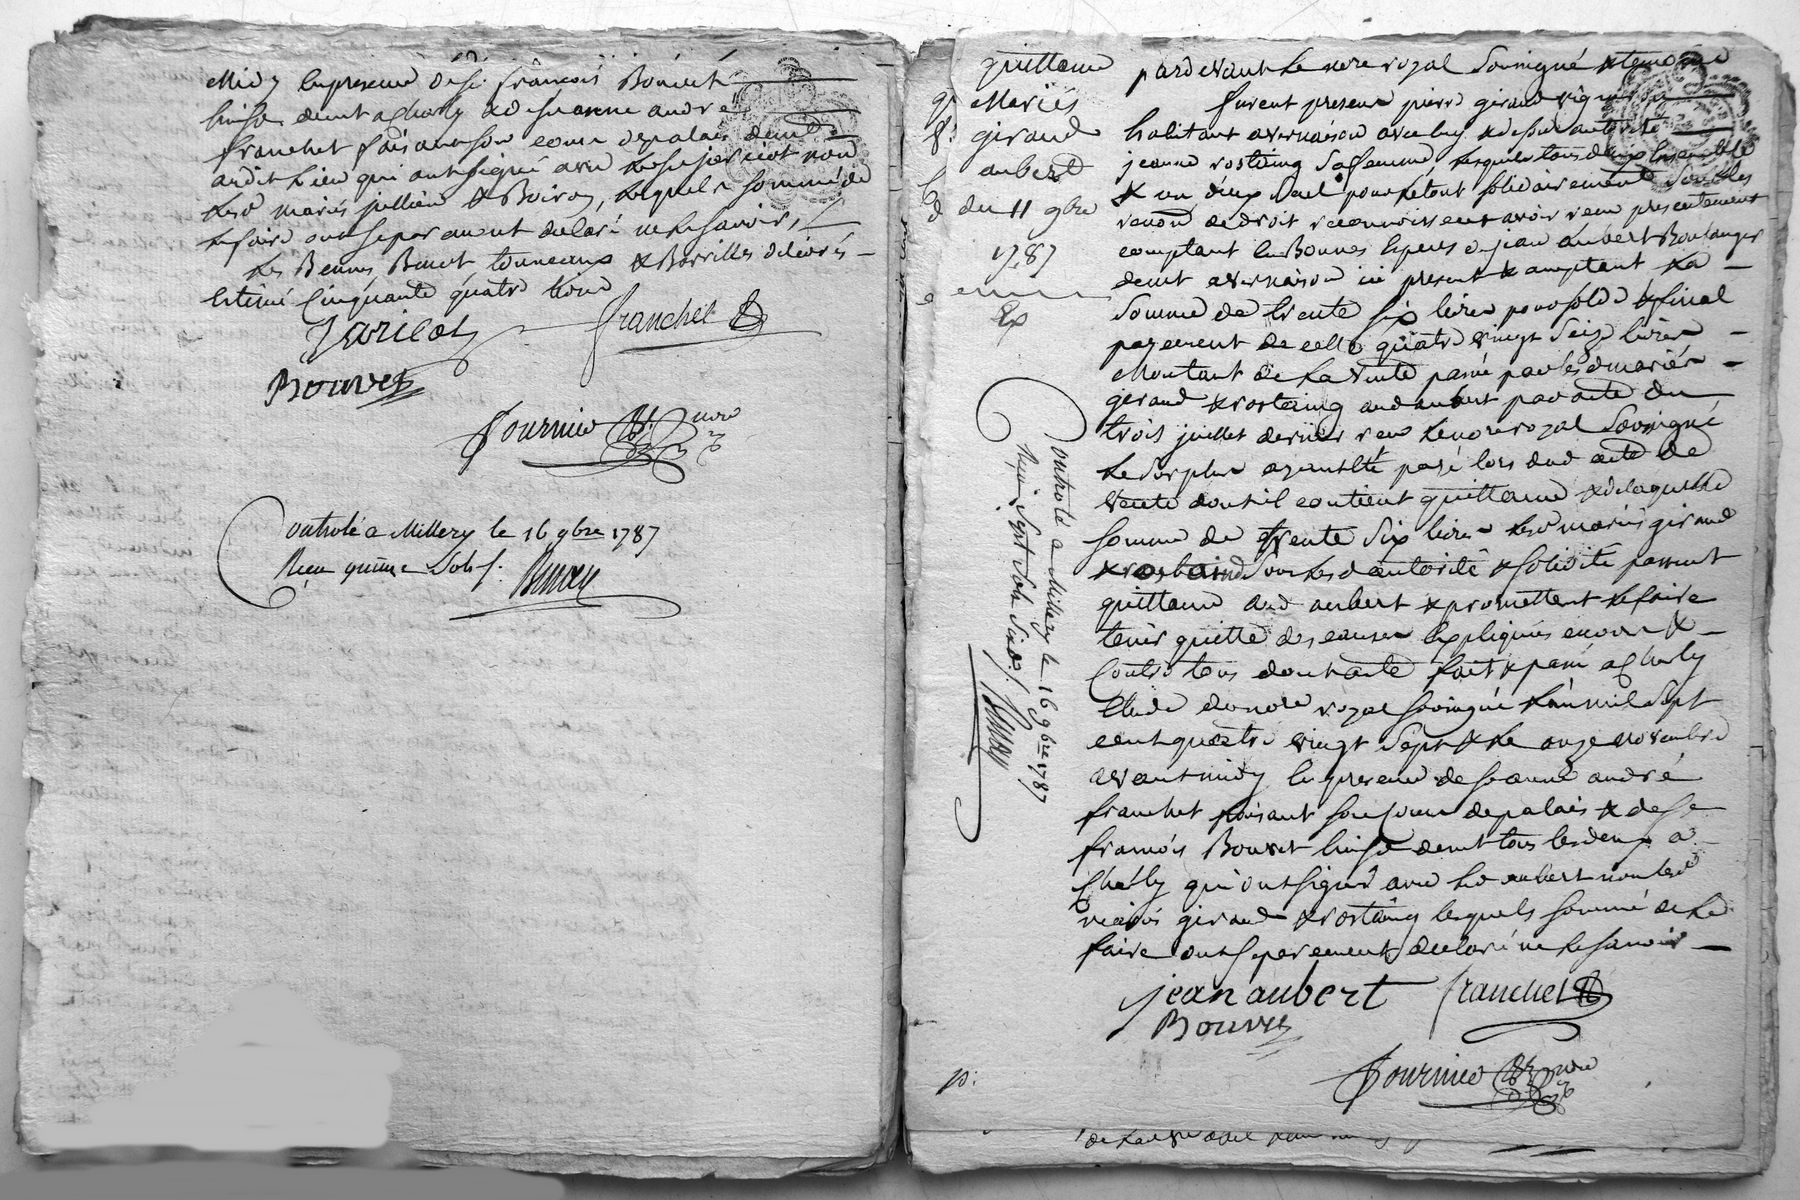 Midy en presence de sr. françois Bouvet
huissr. demt a Charly & de jeanne andré
franchet faisant son cours de palais demt
audit Lieu qui ont signé avec Led jaricot non
Lesd mariés jullien & Boiron, Lesquels sommé de
Le faire ont separement declaré ne Le savoir,
Les Bennes, Benot tonneaux & Barrilles delivrés
Estimé Cinquante quatre livres
Jaricot franchet
Bouvet
fournier nore
Controlé a Millery le 16 9bre 1787
Reçu quinze Sols
Binay
quittance
Mariés
giraud
aubert
du 11 9bre
1787
Ex
Controlé a Millery le 16 9bre 1787
Reçu Sept Sols Six d. Binay
pardevant Le nore royal Soussigné & temoins
furent presens pierre giraud vigneron
habitant a vernaison avec luy & de son autorité
jeanne rostaing Sa femme, Lesquels tous deux Ensemble
& un deux seul pour Le tout solidairement Sous Les
renon. de droit reconnoissent avoir reçu presentement
comptant en Bonnes Especes de jean aubert Boulanger
demt a vernaison ici present & acceptant La
Somme de trente six livres pour solde & final
payement de celle quatre vingt Seize livres
Montant de La vente passé par lesd mariés
giraud & rostaing aud aubert par acte du
trois juillet dernier reçu Le nore royal Soussigné
Le surplus ayant été payé lors dud acte de
Vente dont il contient quittance & de laquelle
somme de trente Six livres Lesd mariés giraud
& rostaing Sous Lesd autorité & solidité passent
quittance aud aubert & promettent Le faire
tenir quitte des causes Expliquées envers &
Contre tous dont acte fait & passé a Charly
Etude du nore royal soussigné L'an mil Sept
cent quatre vingt Sept & Le onze novembre
avant midy En presence de jeanne andré
franchet faisant son cours de palais & de sr
françois Bouvet huissr demt tous les deux a
Charly qui ont signé avec Led aubert non lesd
mariés giraud & rostaing lesquels sommé de Le
faire ont separement declaré ne Le savoir
jean aubert franchet
Bouvet
fournier nore
p: